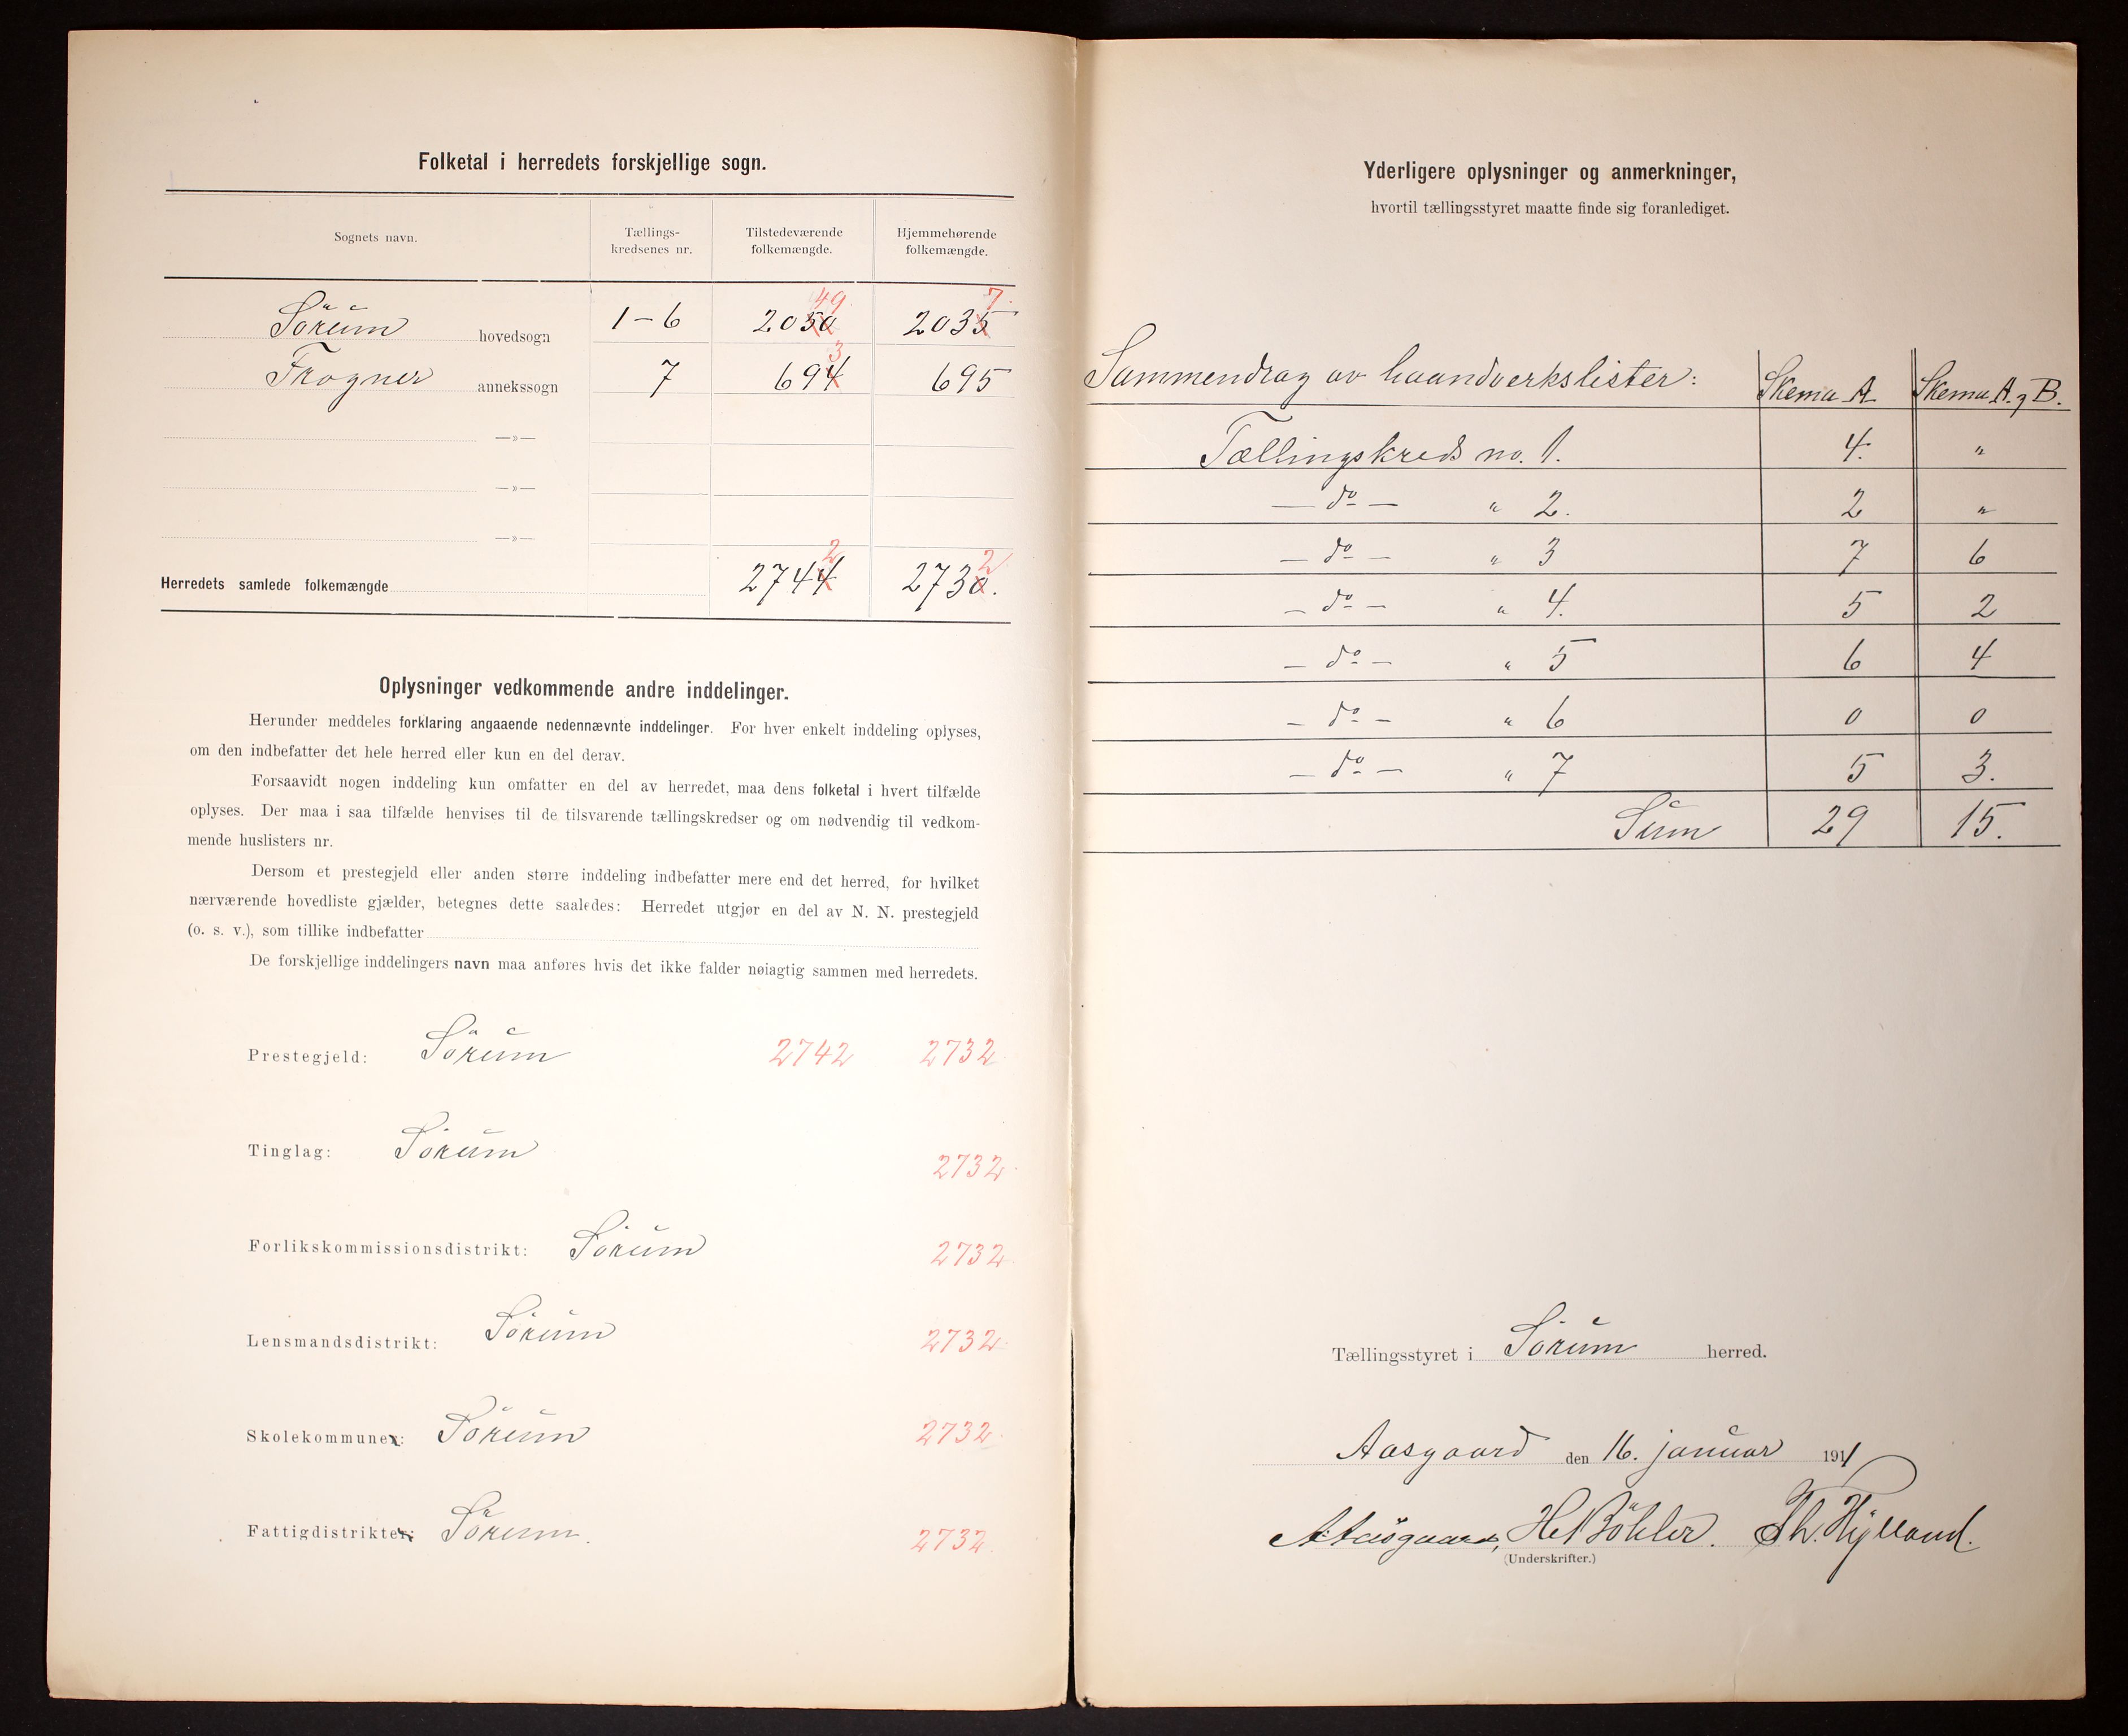 Folketal i herredets forskjellige sogn.
Sognets navn.
Tællings-
kredsenes nr.
Tilstedeværende
folkemængde.
Hjemmehørende
folkemængde.
49. 7.
Sörum hovedsogn 1-6 2050 2035
3
Frogner annekssogn 7 694 695
—»—
—»—
—»—
2 2
Herredets samlede folkemængde 2744 2730.
Oplysninger vedkommende andre inddelinger.
Herunder meddeles forklaring angaaende nedennævnte inddelinger. For hver enkelt inddeling oplyses,
om den indbefatter det hele herred eller kun en del derav.
Forsaavidt nogen inddeling kun omfatter en del av herredet, maa dens folketal i hvert tilfælde
oplyses. Der maa i saa tilfælde henvises til de tilsvarende tællingskredser og om nødvendig til vedkom-
mende huslisters nr.
Dersom et prestegjeld eller anden større inddeling indbefatter mere end det herred, for hvilket
nærværende hovedliste gjælder, betegnes dette saaledes: Herredet utgjør en del av N. N. prestegjeld
(o. s. v.), som tillike indbefatter
De forskjellige inddelingers navn maa anføres hvis det ikke falder nøiagtig sammen med herredets.
Prestegjeld: Sörum 2742 2732
Tinglag: Sörum 2732
Forlikskommissionsdistrikt: Sörum 2732
Lensmandsdistrikt: Sörum 2732
Skolekommuner: Sörum 2732
Fattigdistrikter: Sörum. 2732.
Yderligere oplysninger og anmerkninger,
hvortil tællingsstyret maatte finde sig foranlediget.
Sammendrag av haandverkslister: Skema A Skema A. og B.
Tællingskreds no. 1. 4. "
— do — " 2. 2 "
— do — " 3 7 6
— do — " 4. 5 2
— do — " 5 6 4
— do — " 6 0 0
— do — " 7 5 3.
Sum 29 15.
Tællingsstyret i Sörum herred.
Aasgaard den 16. januar 1911
A Aasgaard, H. Böhler. Th. Hylland.
(Underskrifter.)